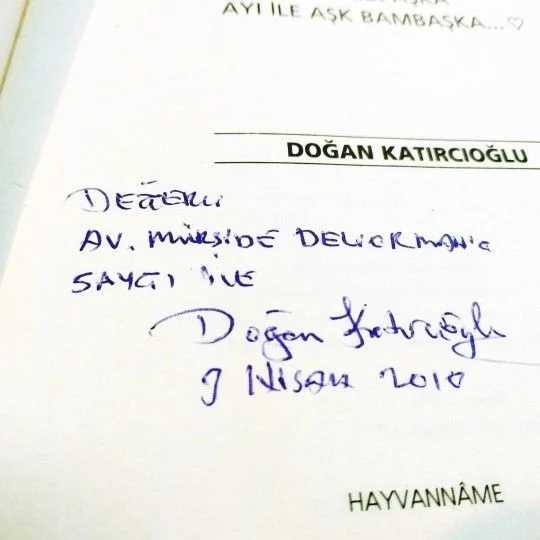 AYI İLE AŞK BAMBAŞKA...♡
DOĞAN KATIRCIOĞLU
DEĞERLİ
AV. MÜRŞİDE
SAYGI İLE
Doğan Katırcıoğlu
9 NİSAN 2010
HAYVANNÂME